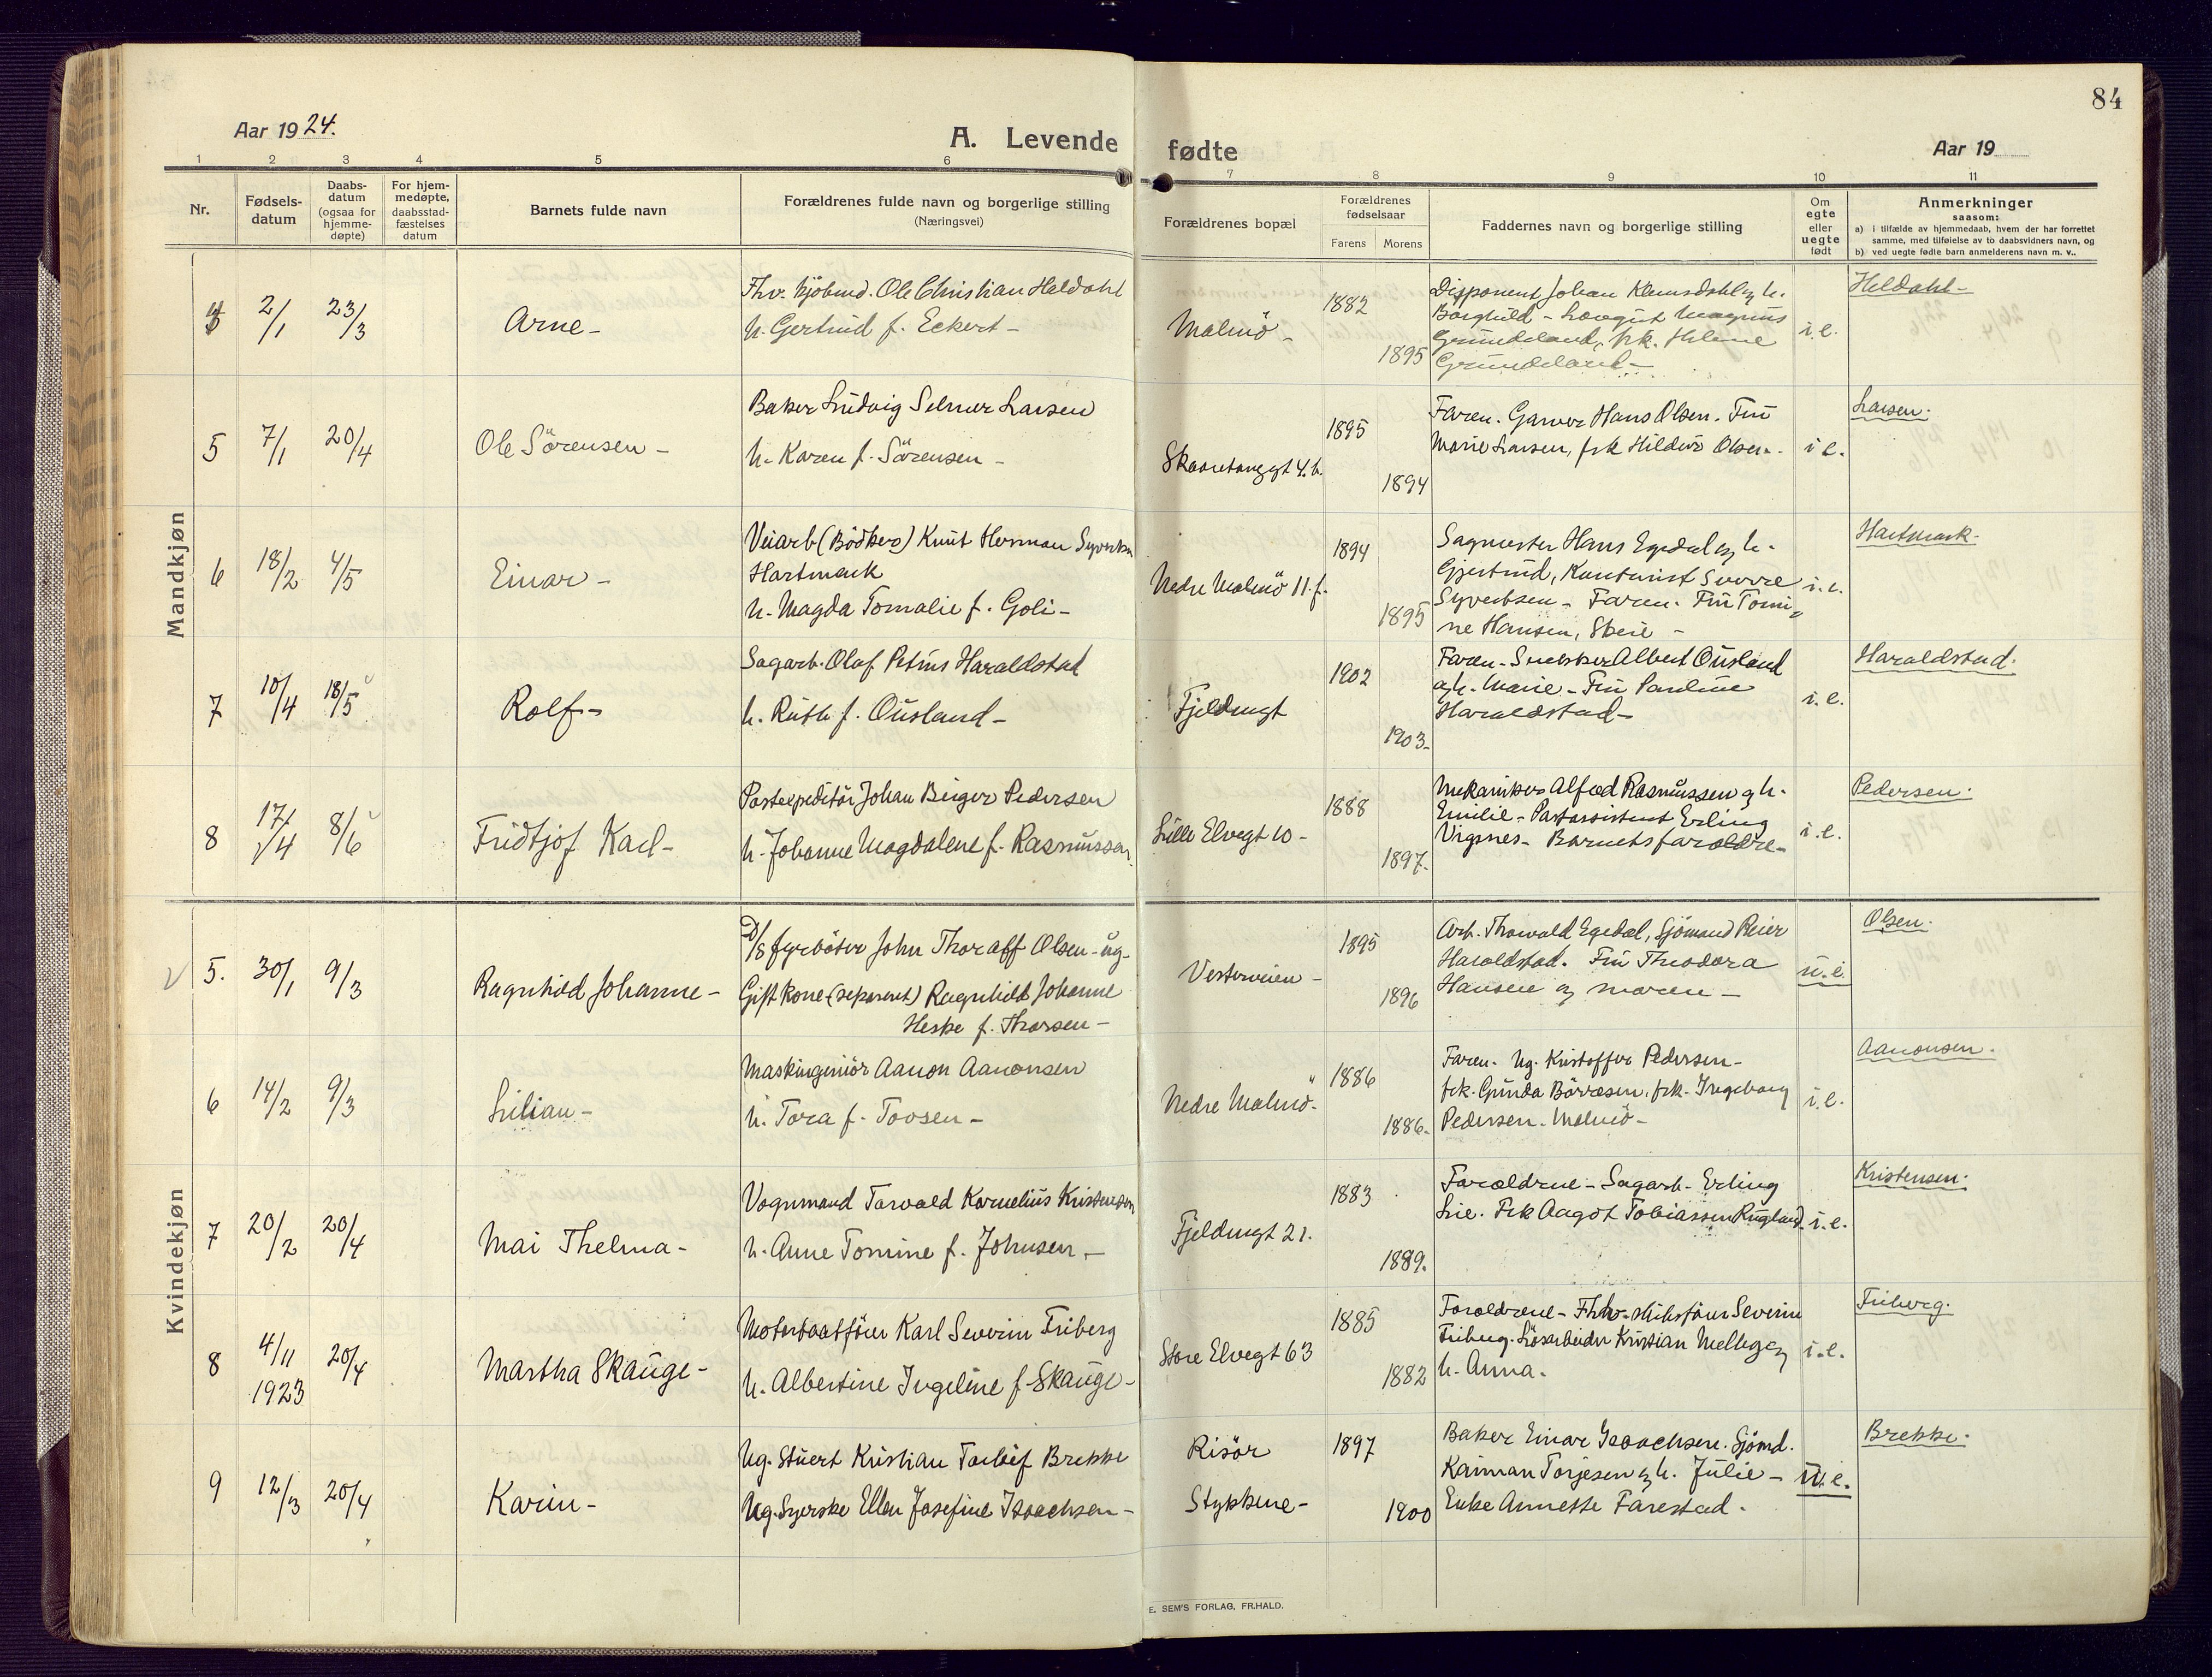 84
Aar 1924.
A. Levende fødte
Aar 19
1 2 3 4 5 6 7 8 9 10 11
Nr.
Fødsels-
datum
Daabs-
datum
(ogsaa for
hjemme-
døpte)
For hjem-
medøpte,
daabsstad-
fæstelses
datum
Barnets fulde navn
Forældrenes fulde navn og borgerlige stilling
(Næringsvei)
Forældrenes bopæl
Forældrenes
fødselsaar
Farens Morens
Faddernes navn og borgerlige stilling
Om
egte
eller
uegte
født
Anmerkninger
saasom:
a) i tilfælde av hjemmedaab, hvem der har forrettet
samme, med tilføielse av to daabsvidners navn, og
b) ved uegte fødte barn anmelderens navn m. v..
Mandkjøn
4 2/1 23/3
Arne-
Fhv. Kjöbmd. Ole Christian Heldahl
h. Gertrud f. Eckert-
Malmö-
1882
1895
Disponent Johan Klemsdahl og h.
Borghild - Magnus
Grundeland, frk. Helene
Grundeland-
i.e.
Heldahl-
5 7/1 20/4
Ole Sörensen-
Baker Ludvig Selmer Larsen
h. Karen f. Sörensen-
Skaaretanggt 4.b.
1895
1894
Faren. Garver Hans Olsen. Fru
Marie Larsen, frk Hildur Olsen.
i e.
Larsen.
6 18/2 4/5
Einar-
Veiarb (Bödker) Knut Herman Syvertsen
Hartmark
h. Magda Tomalie f. Goli-
Nedre Malmö 11.f.
1894
1895
Sagmester Hans Egedal og h.
Gjertrud, Kontorist Sverre
Syvertsen- Faren. Fru Tomi-
ne Hansen, Skeie-
i.e.
Hartmark-
7 10/4 18/5
Rolf-
Sagarb. Olaf Petrus Haraldstad
h. Ruth f. Ousland-
Fjeldengt
1902
1903.
Faren- Snekker Albert Ousland
og h. Marie- Fru Pauline
Haraldstad-
i.e.
Haraldstad.
8 17/4 8/6
Fridtjof Karl-
Postexpeditör Johan Birger Pedersen
h. Johanne Magdalene f. Rasmussen.
Lille Elvegt 10-
1888
1897.
Mekaniker Alfred Rasmussen og h.
Emilie- Postassistent Erling
Vigsnes- Barnets forældre-
i.e.
Pedersen.
Kvindekjøn
5. 30/1 9/3
Ragnhild Johanne-
D/S fyrböter John Thoralf Olsen-ug-
Gift kone (separert) Ragnhild Johanne
Heske f. Thorsen-
Vesterveien-
1895
1896
Arb. Thorvald Egedal, Sjömand Reier
Haraldstad. Fru Theodora
Hansen og moren-
u.e
Olsen.
6 14/2 9/3
Lilian-
Maskingeniör Aanon Aanonsen
h. Tora f. Toosen-
Nedre Malmö-
1886
1886-
Faren. Ug. Kristoffer Pedersen-
frk. Gunda Börresen, frk. Ingeborg
Pedersen. Malmö-
i.e.
Aanonsen.
7 20/2 20/4
Mai Thelma-
Vognmand Torvald Kornelius Kristensen
h. Anne Tomine f. Johnsen-
Fjeldengt 21.
1883
1889.
Forældrene- Sagarb. Erling
Lie. Frk Aagot Tobiassen Rugland
i.e.
Kristensen.
8 4/11 1923 20/4
Martha Skauge-
Motorbaatförer Karl Severin Friberg
h. Albertine Ingeline f. Skauge-
Store Elvegt 63
1885
1882
Forældrene- Fhv. Severin
Friberg. Lösarbeider Kristian Melberg og
h. Anna.
i.e.
Friberg.
9 12/3 20/4
Karin-
Ug. Stuert Kristian Torleif Brekke
Ug. Syerske Ellen Josefine Isaachsen-
Risör
Stykkene-
1897
1900
Baker Einar Isaachsen. Sjömd.
Kaiman Torjesen og h. Julie-
Enke Annette Farestad.
u.e.
Brekke.
E. SEM'S FORLAG, FR.HALD.